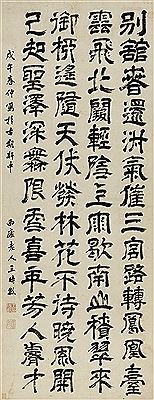 別館春還淑氣催三宮路轉鳳凰臺
雲飛北闕輕陰散雨歇南山積翠來
御柳遙隨天仗發林花不待曉風開
已知聖澤深無限更喜年芳入睿才
戊午春仲寫於古軒中
西廬老人王時敏